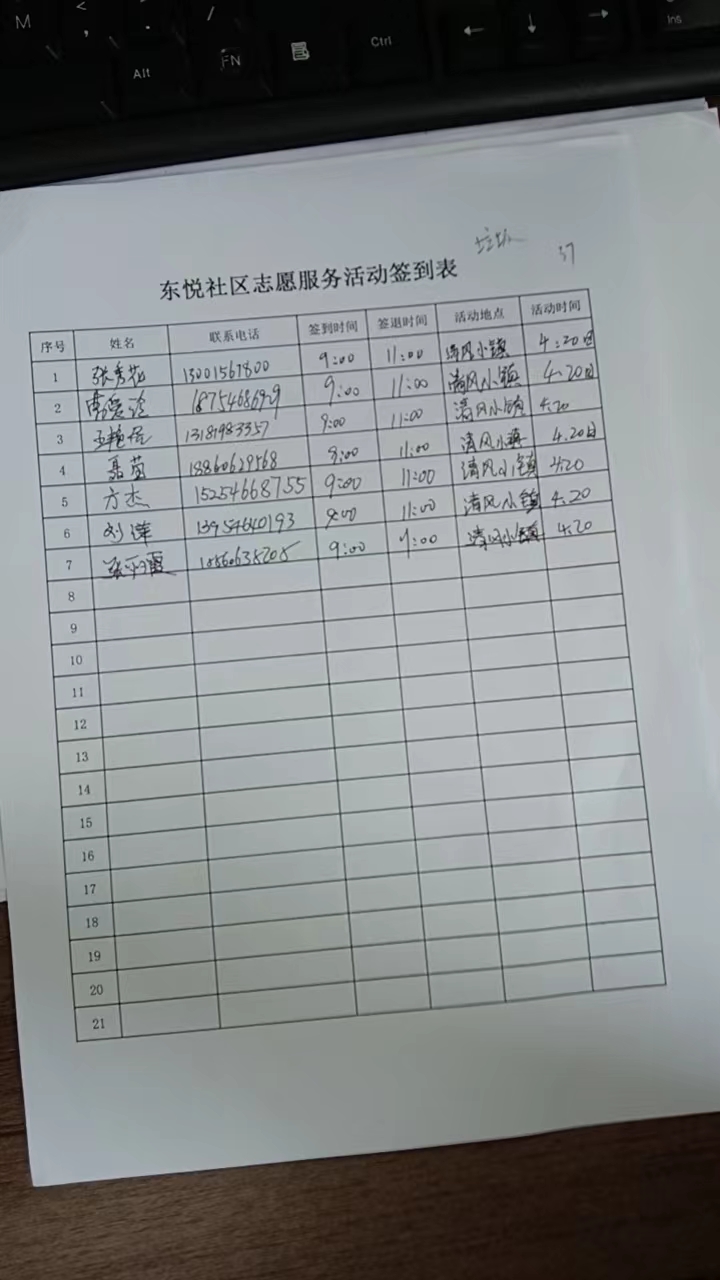 M < , . / Alt FN Ctrl ← ↓ → Ins
垃圾 37
东悦社区志愿服务活动签到表
序号 姓名 联系电话 签到时间 签退时间 活动地点 活动时间
1 张秀花 13001567800 9:00 11:00 清风小镇 4.20日
2 9:00 11:00 清风小镇 4.20日
3 13181983357 9:00 11:00 清风小镇 4.20
4 聂茵 18860629568 9:00 11:00 清风小镇 4.20日
5 方杰 15254668755 9:00 11:00 清风小镇 4.20
6 刘 13954640193 9:00 11:00 清风小镇 4.20
7 9:00 清风小镇 4.20
8
9
10
11
12
13
14
15
16
17
18
19
20
21